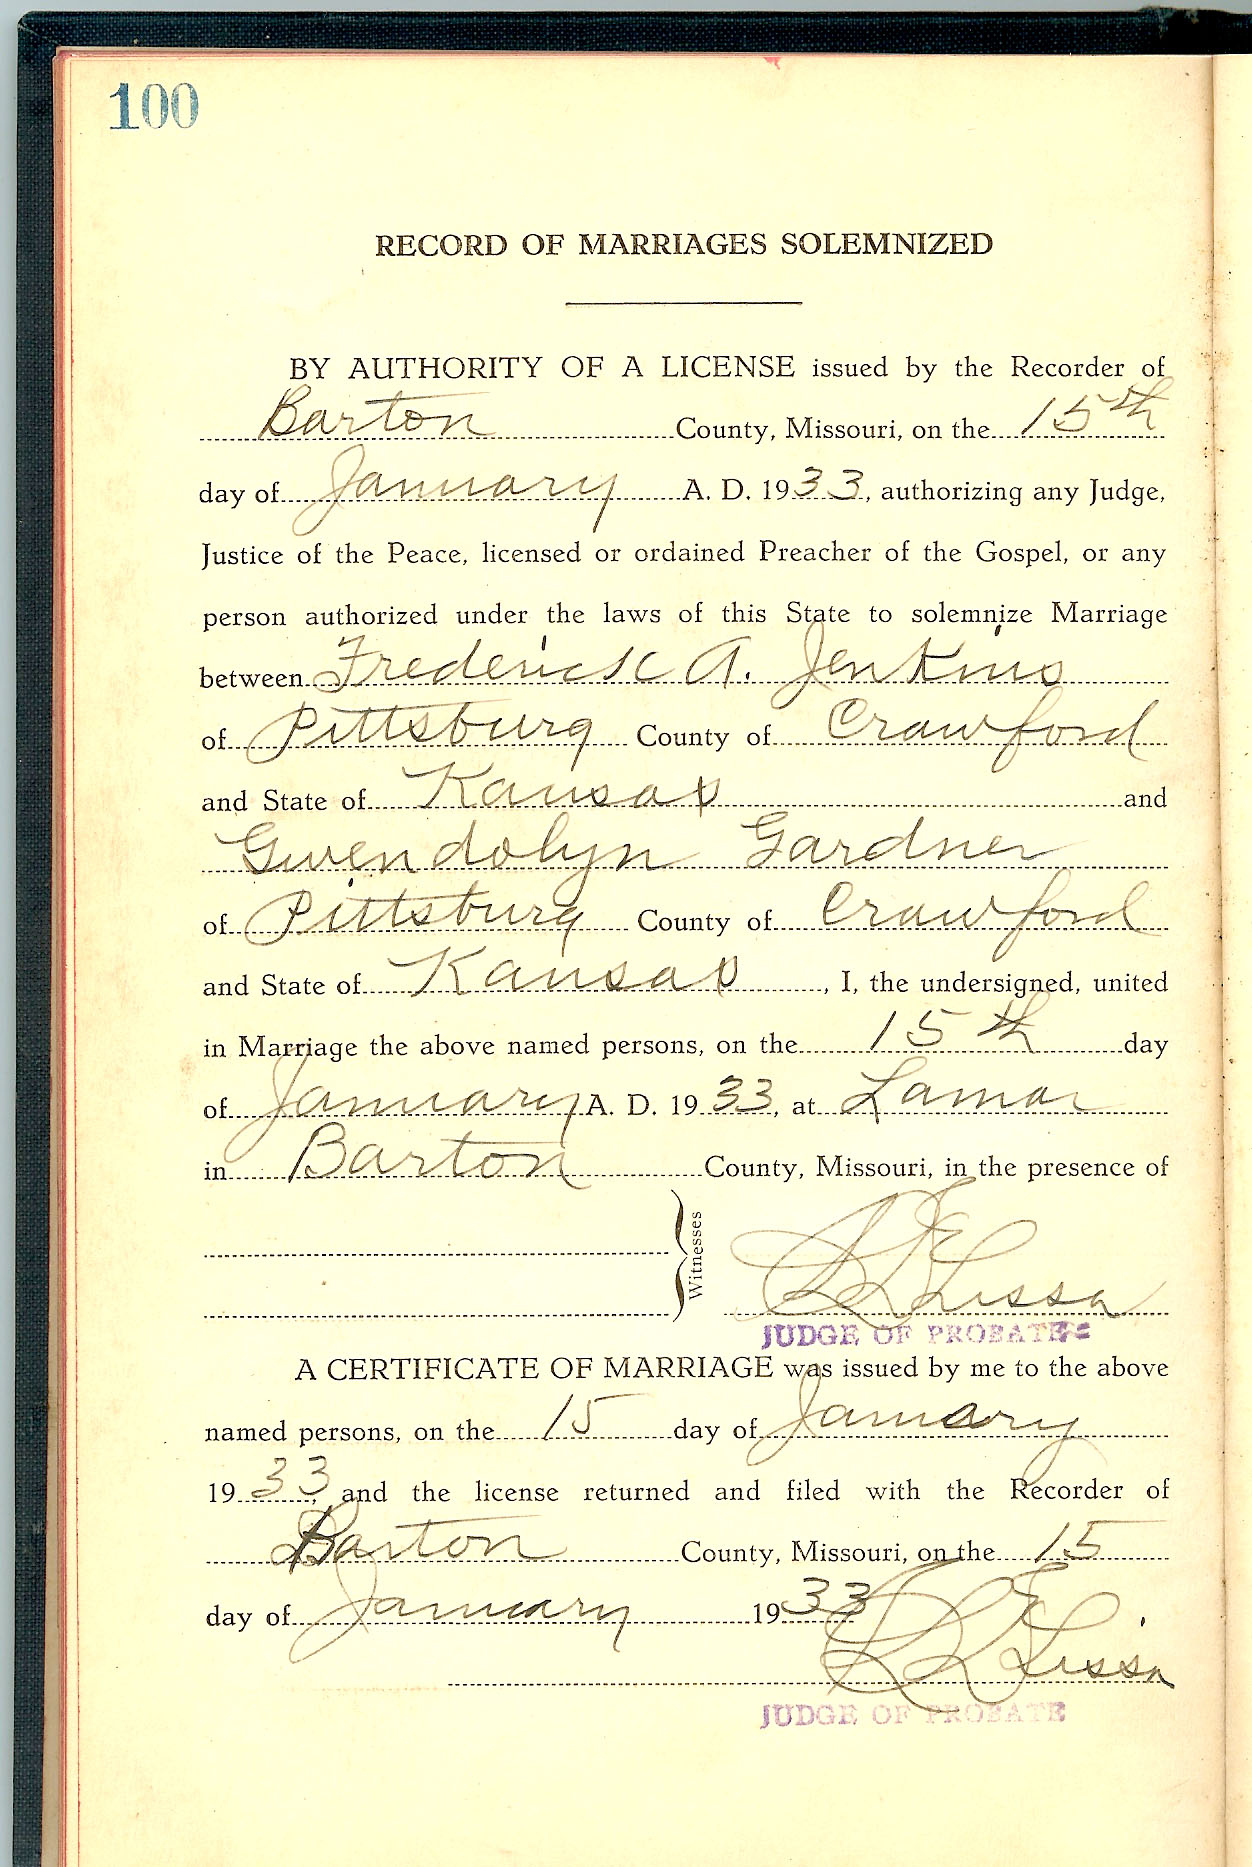 100
RECORD OF MARRIAGES SOLEMNIZED
BY AUTHORITY OF A LICENSE issued by the Recorder of
Barton County, Missouri, on the 15th
day of January A. D. 1933, authorizing any Judge,
Justice of the Peace, licensed or ordained Preacher of the Gospel, or any
person authorized under the laws of this State to solemnize Marriage
between Frederick A. Jenkins
of Pittsburg County of Crawford
and State of Kansas and
Gwendolyn Gardner
of Pittsburg County of Crawford
and State of Kansas, I, the undersigned, united
in Marriage the above named persons, on the 15th day
of January A. D. 1933, at Lamar
in Barton County, Missouri, in the presence of
Witnesses
JUDGE OF PROBATE
A CERTIFICATE OF MARRIAGE was issued by me to the above
named persons, on the 15 day of January
1933, and the license returned and filed with the Recorder of
Barton County, Missouri, on the 15
day of January 1933
JUDGE OF PROBATE